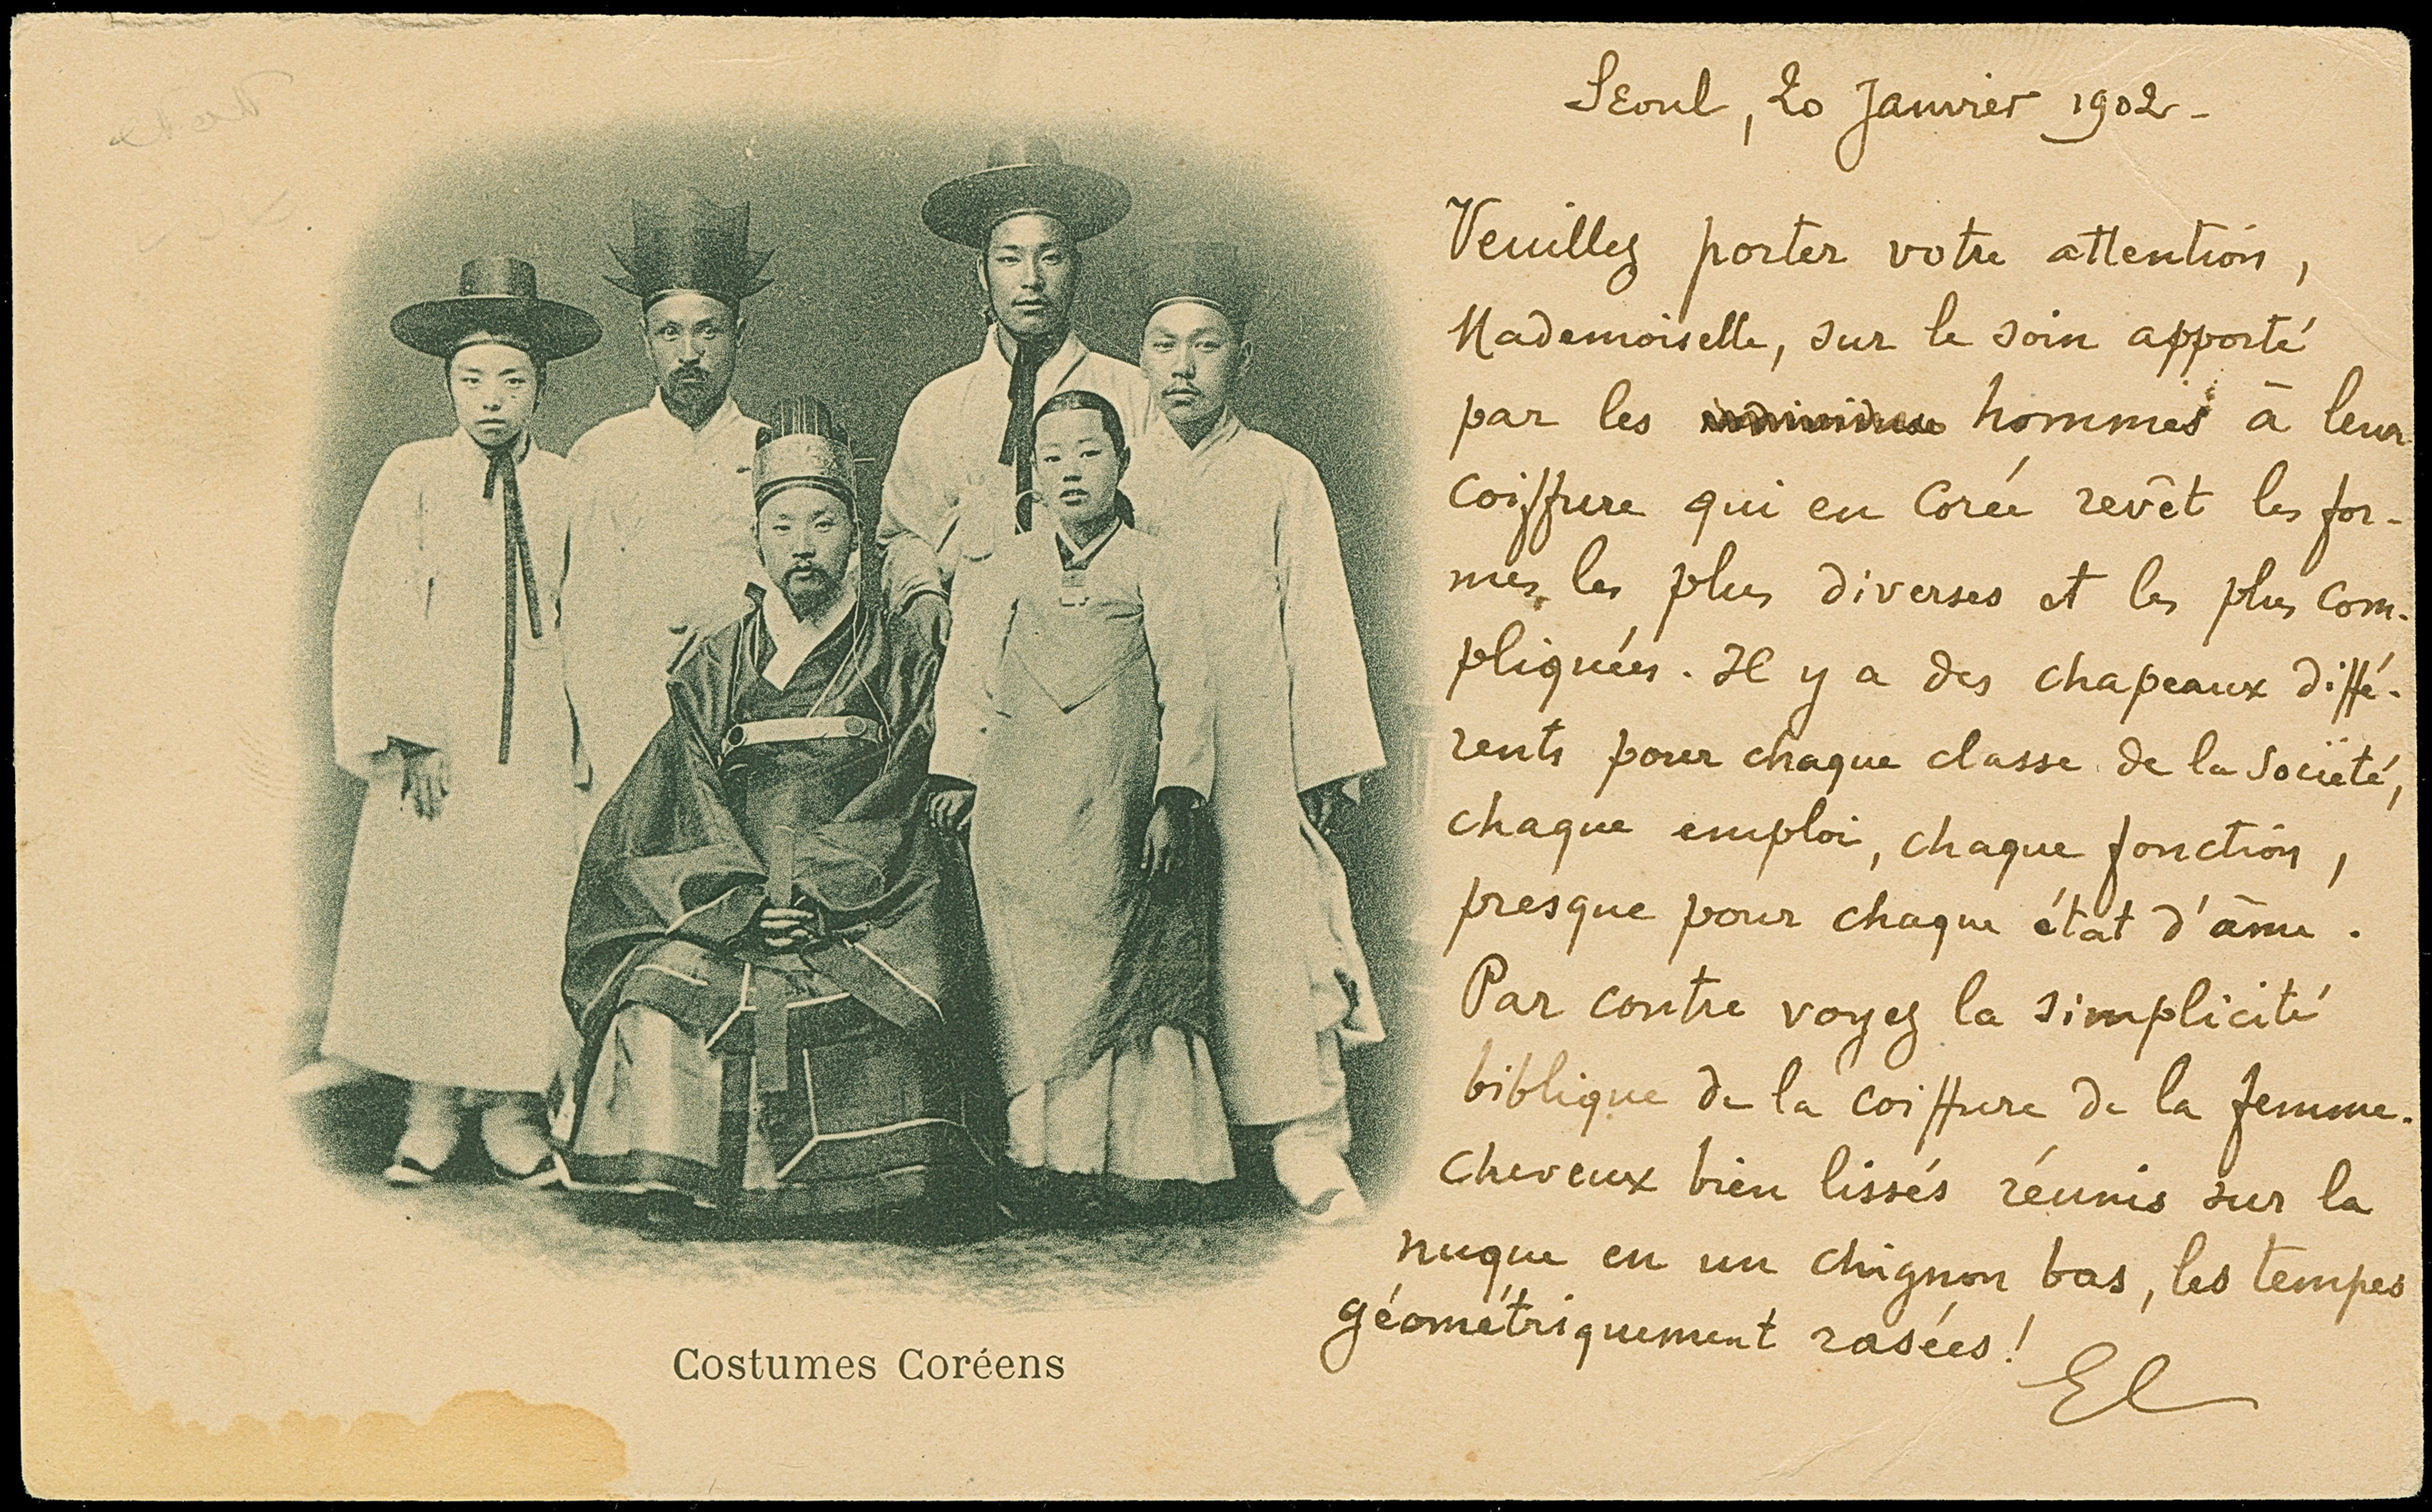 Seoul, 20 Janvier 1902 -
Veuillez porter votre attention,
Mademoiselle, sur le soin apporté
par les hommes à leur
coiffure qui en Corée revêt les for-
mes les plus diverses et les plus com-
pliquées. Il y a des chapeaux diffé-
rents pour chaque classe de la Société,
chaque emploi, chaque fonction,
presque pour chaque état d'âme.
Par contre voyez la simplicité
biblique de la coiffure de la femme.
Cheveux bien lissés réunis sur la
nuque en un chignon bas, les tempes
géométriquement rasées!
Costumes Coréens